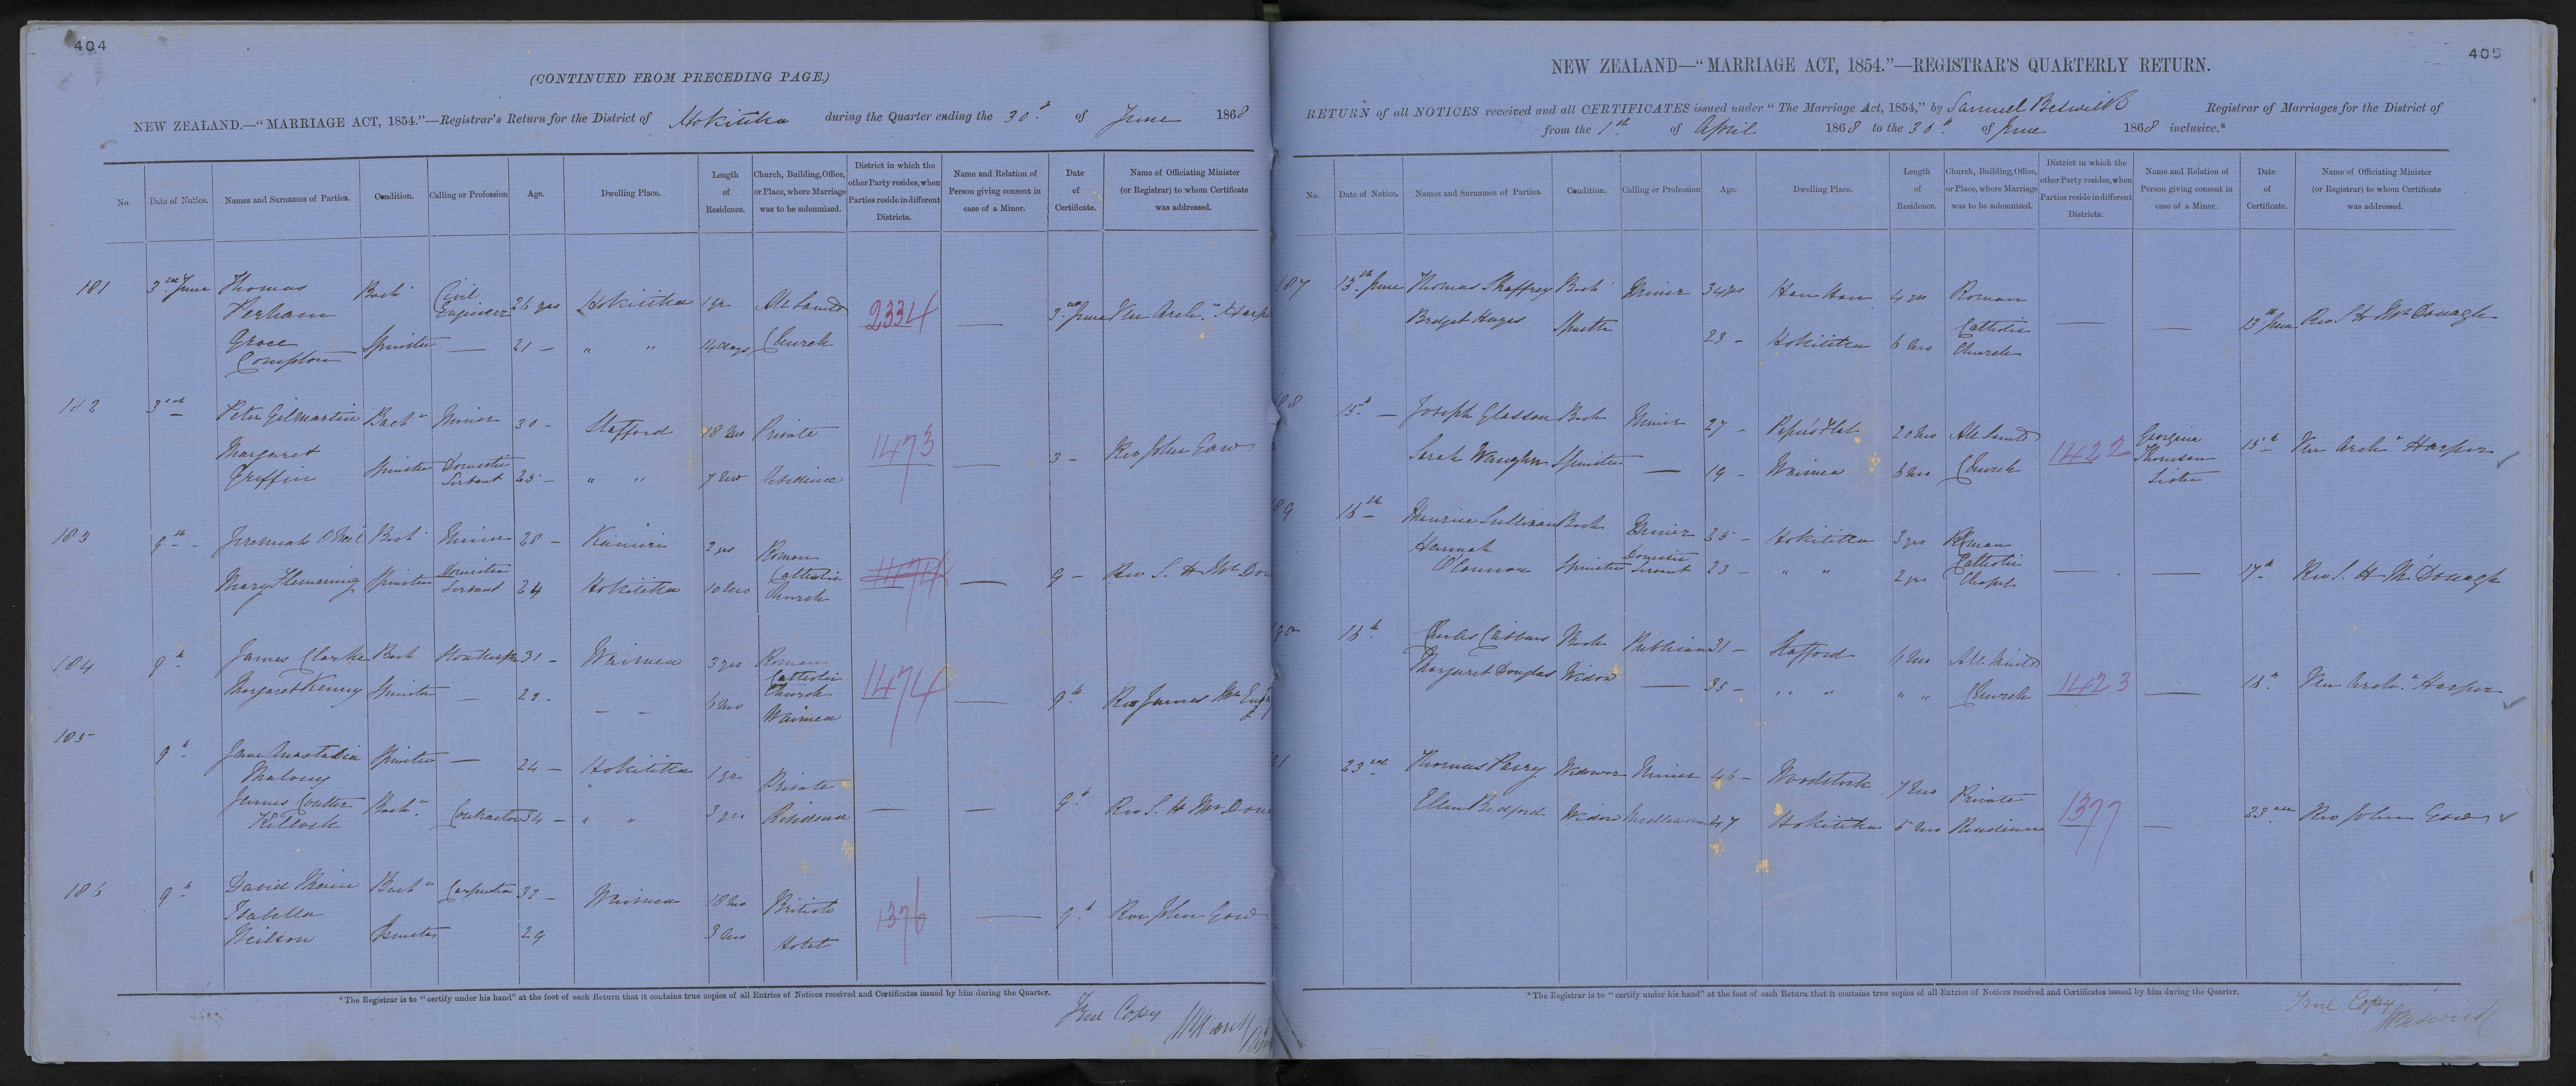 404
(CONTINUED FROM PRECEDING PAGE.)
NEW ZEALAND.—"MARRIAGE ACT, 1854."—Registrar's Return for the District of Hokitika during the Quarter ending the 30th of June 1868
No. Date of Notice. Names and Surnames of Parties. Condition. Calling or Profession Age. Dwelling Place. Length of Residence. Church, Building, Office, or Place, where Marriage was to be solemnized. District in which the other Party resides, when Parties reside in different Districts. Name and Relation of Person giving consent in case of a Minor. Date of Certificate. Name of Officiating Minister (or Registrar) to whom Certificate was addressed.
181 3rd June Thomas Perham Bach Civil Engineer 26 yrs Hokitika 1 yr All Saints 2334 — 3rd June Ven Archn Harp
Grace Compton Spinster — 21 — " " 14 days Church
182 3rd Peter Gilmartin Bach Miner 30 — Stafford 18 Mo Private 1473 — 3 — Rev John Gow
Margaret Griffin Spinster Domestic Servant 25 — " " 7 Mo Residence
183 9th Jeremiah O Neil Bach Miner 28 — Kanieri 2 yrs Roman Catholic Church 1474 — 9 — Rev S. H Mc Don
Mary Flemming Spinster Domestic Servant 24 Hokitika 10 Mo
184 9th James Clarke Bach Storekeeper 31 — Waimea 3 yrs Roman Catholic Church Waimea 1474 — 9th Rev James Mc
Margaret Kenny Spinster — 29 — — 6 Mo
185 9th Jane Anastatia Malony Spinster — 24 — Hokitika 1 yr Private — — 9th Rev S. H Mc Don
James Coulter Killock Bach Contractor 34 — " " 3 yrs Residence
186 9th David Bach Carpenter 32 — Waimea 18 Mo British 1376 — 9th Rev John Gow
Isabella Neilson Spinster 29 3 Mo Hotel
*The Registrar is to "certify under his hand" at the foot of each Return that it contains true copies of all Entries of Notices received and Certificates issued by him during the Quarter.
True Copy
405
NEW ZEALAND—"MARRIAGE ACT, 1854."—REGISTRAR'S QUARTERLY RETURN.
RETURN of all NOTICES received and all CERTIFICATES issued under "The Marriage Act, 1854," by Samuel Beswick Registrar of Marriages for the District of
from the 1st of April 1868 to the 30th of June 1868 inclusive.*
No. Date of Notice. Names and Surnames of Parties. Condition. Calling or Profession Age. Dwelling Place. Length of Residence. Church, Building, Office, or Place, where Marriage was to be solemnized. District in which the other Party resides, when Parties reside in different Districts. Name and Relation of Person giving consent in case of a Minor. Date of Certificate. Name of Officiating Minister (or Registrar) to whom Certificate was addressed.
187 13th June Thomas Shaffrey Bach Miner 34 yrs Hau Hau 4 yrs Roman Catholic Church — — 13th June Rev S H McDonagh
Bridget Hayes Spinster 23 — Hokitika 6 Mo
188 15th — Joseph Glasson Bach Miner 27 — Piper's Flat 20 Mo All Saints 1422 Georgina Thomson Sister 15th Ven Archn Harper
Sarah Vaughn Spinster — 19 — Waimea 6 Mo Church
189 16th Maurice Sullivan Bach Miner 25 — Hokitika 3 yrs Roman Catholic Chapel — — 17th Rev S. H McDonagh
Hannah O'Connor Spinster Domestic Servant 23 — " " 2 yrs
190 16th Charles Bach Publican 31 — Stafford 6 Mo All Saints 1423 — 16th Ven Archn Harper
Margaret Douglas Widow — 35 — " " " " Church
91 23rd Thomas Perry Widower Miner 46 — Woodstock 7 Mo Private 1377 — 23rd Rev John Gow
Ellen Bedford Widow Needlewoman 47 Hokitika 5 Mo Residence
*The Registrar is to "certify under his hand" at the foot of each Return that it contains true copies of all Entries of Notices received and Certificates issued by him during the Quarter.
True Copy
SBeswick